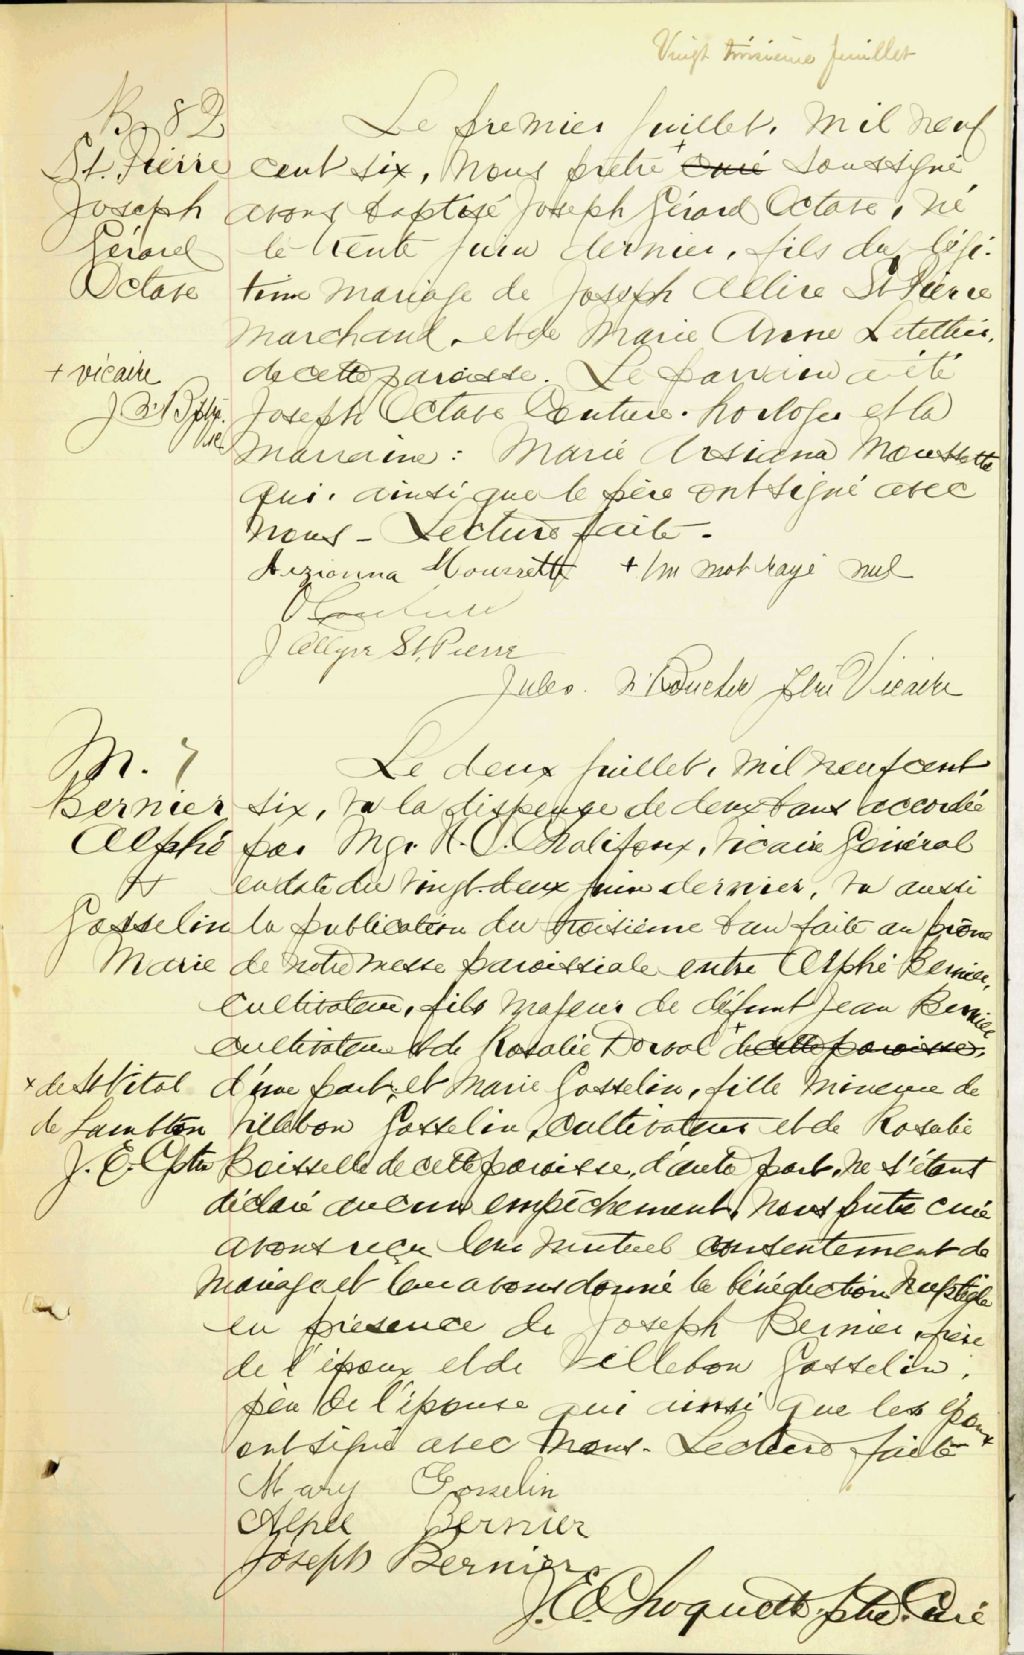 Vingt troisième feuillet
B. 82
St. Pierre
Joseph
Gérard
Octave
+ vicaire
Le premier juillet, mil neuf
cent six, nous prêtre + curé soussigné
avons baptisé Joseph Gérard Octave, né
le trente juin dernier, fils du légi-
time mariage de Joseph Allire St Pierre
marchand, et de Marie Anne Letellier,
de cette paroisse. Le parrain a été
Joseph Octave Couture, horloger et la
marraine: Marie Arsiana Moussette
qui, ainsi que le père ont signé avec
nous - Lecture faite -
Arzianna Moussette + Un mot rayé nul
O Couture
J Allyre St. Pierre
Jules Boucher ptre Vicaire
M. 7
Bernier
Alphé
&
Gosselin
Marie
x de St Vital
de Lambton
J. E. C ptre
Le deux juillet, mil neuf cent
six, vu la dispense de deux bans accordée
par Mgr. H. O. Chalifoux, Vicaire Général
en date du vingt-deux juin dernier, vu aussi
la publication du troisième ban faite au prône
de notre messe paroissiale entre Alphé Bernier,
cultivateur, fils majeur de défunt Jean Bernier
cultivateur et de Rosalie Dorval + de cette paroisse,
d'une part, et Marie Gosselin, fille mineure de
Villebon Gosselin, cultivateur et de Rosalie
Boisselle de cette paroisse, d'autre part, ne s'étant
déclaré aucun empêchement, nous prêtre curé
avons reçu leur mutuel consentement de
mariage et leur avons donné la bénédiction nuptiale
en présence de Joseph Bernier, frère
de l'époux et de Villebon Gosselin,
père de l'épouse qui ainsi que les époux
ont signé avec nous - Lecture faite
Mary Gosselin
Alphé Bernier
Joseph Bernier
J. E. Choquette, ptre. Curé